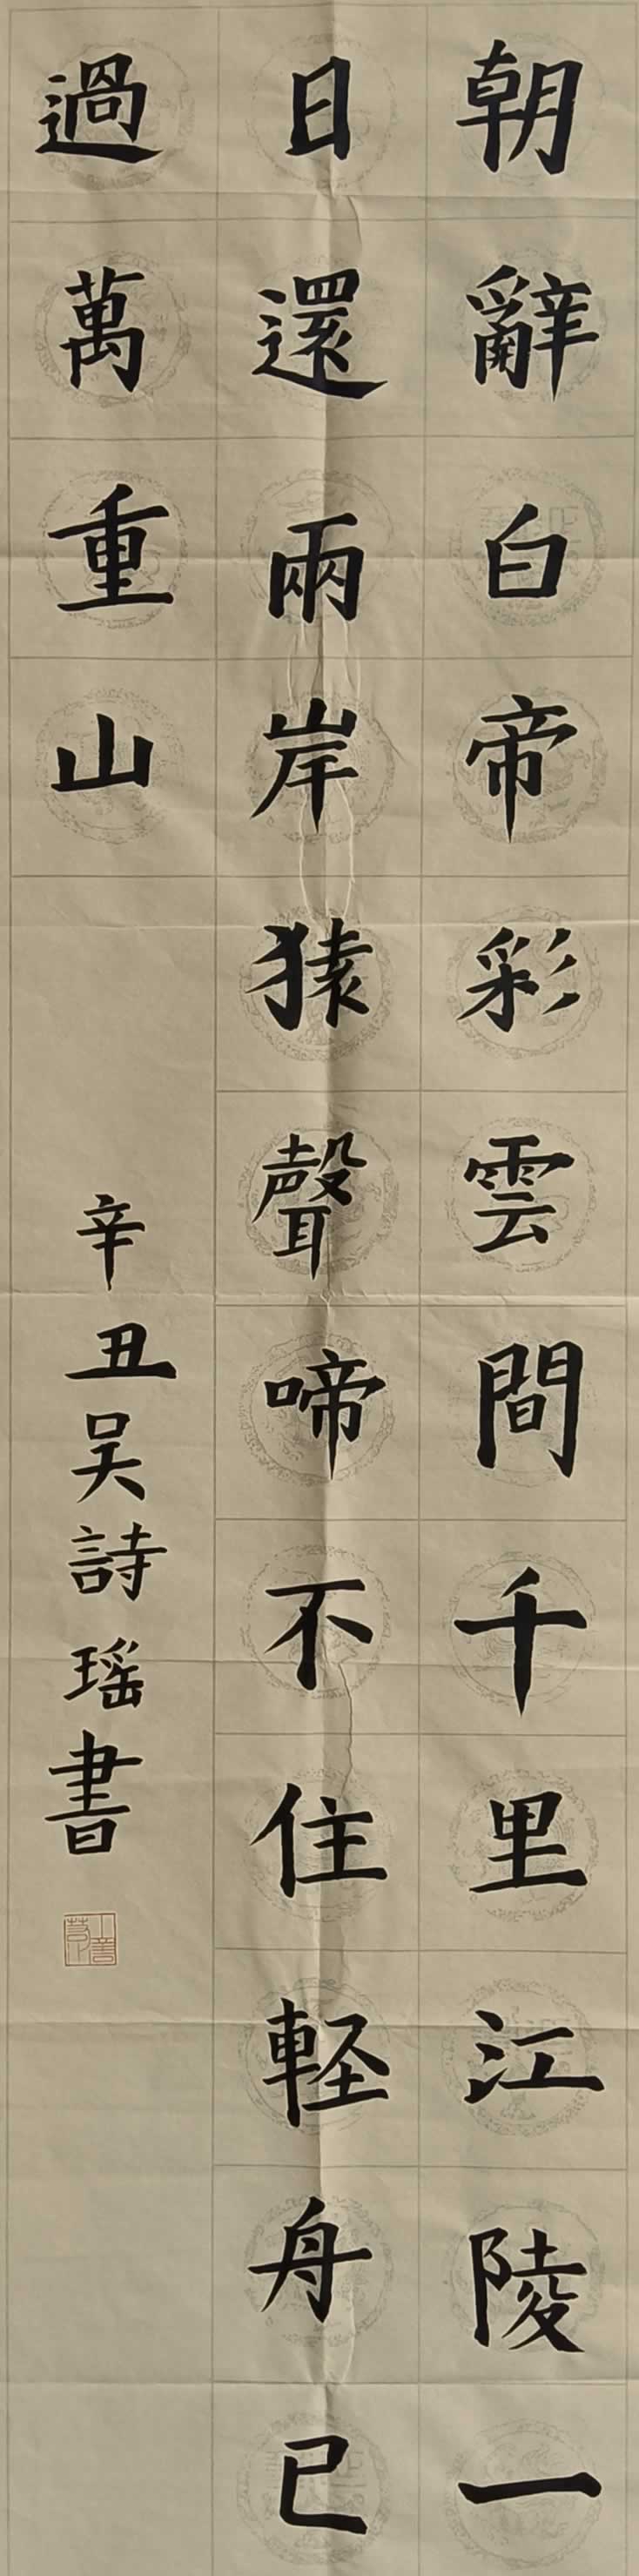 朝辭白帝彩雲間千里江陵一
日還兩岸猿聲啼不住軽舟已
過萬重山
辛丑吴詩瑶書